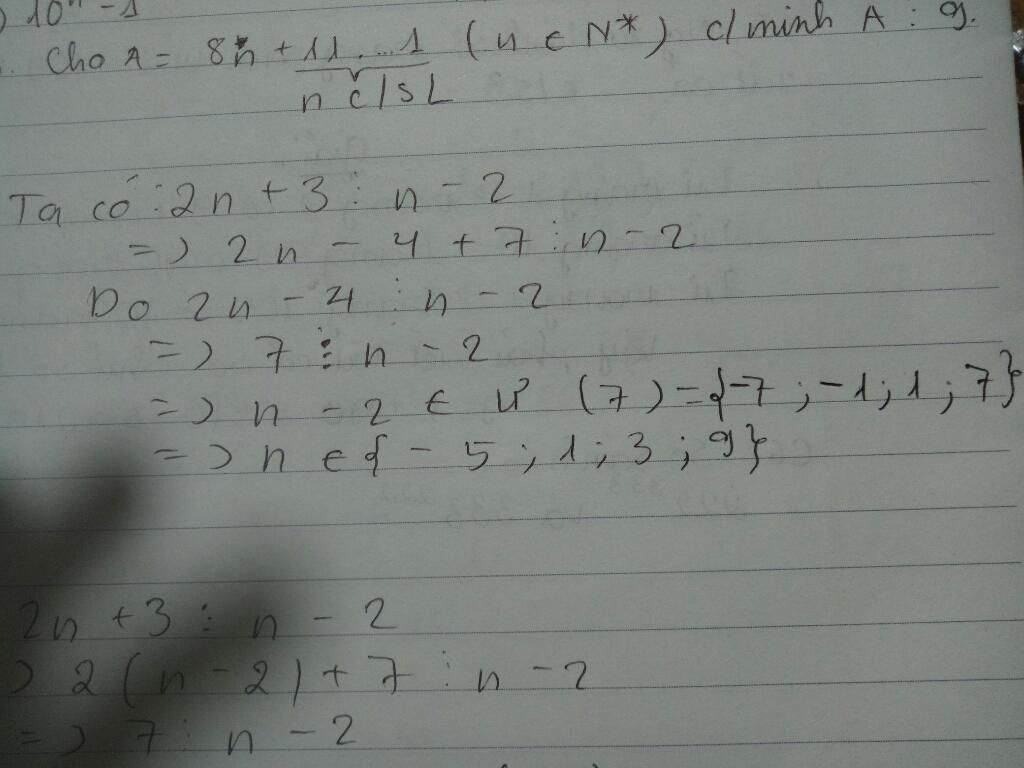 ) 10ⁿ - 1
. Cho A = 8n + 11...1 (n ∈ N*) c/minh A ⋮ 9.
n c/s 1
Ta có : 2n + 3 ⋮ n - 2
=> 2n - 4 + 7 ⋮ n - 2
Do 2n - 4 ⋮ n - 2
=> 7 ⋮ n - 2
=> n - 2 ∈ Ư (7) = {-7 ; -1 ; 1 ; 7}
=> n ∈ { - 5 ; 1 ; 3 ; 9}
2n + 3 ⋮ n - 2
) 2(n - 2) + 7 ⋮ n - 2
=> 7 ⋮ n - 2